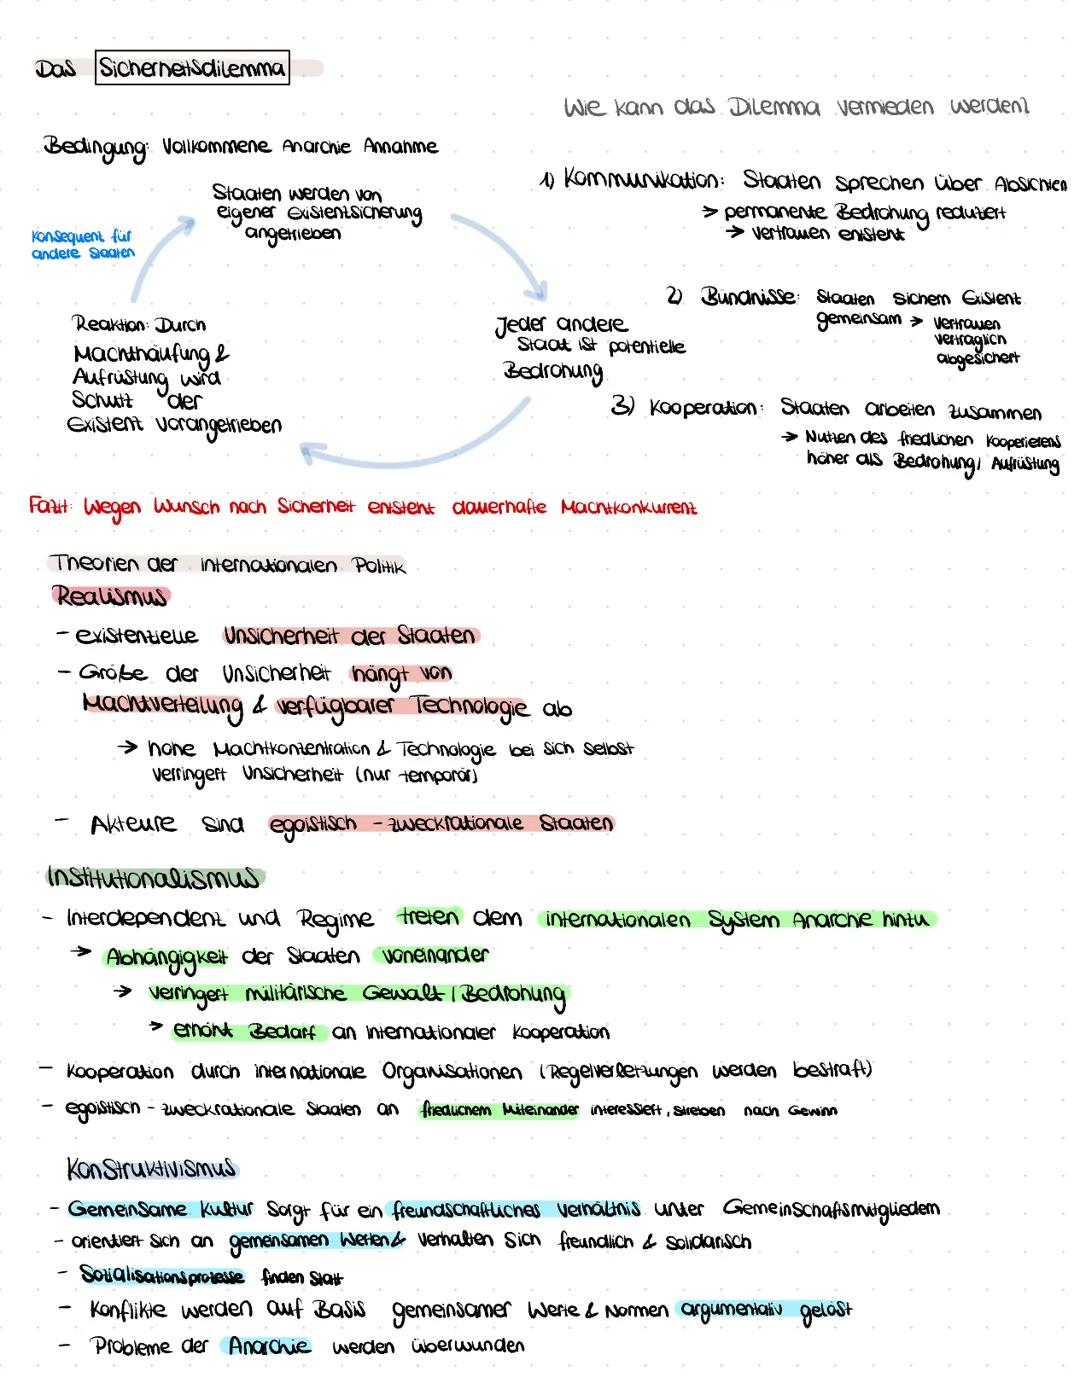 Das Sicherheitsdilemma
Wie kann das Dilemma vermieden werden?
Bedingung: Vollkommene Anarchie Annahme
Staaten werden von
eigener Existenzsicherung
angetrieben
Konsequenz für
andere Staaten
Jeder andere
Staat ist potentielle
Bedrohung
Reaktion: Durch
Machthäufung &
Aufrüstung wird
Schutz der
Existenz vorangetrieben
1) Kommunikation: Staaten sprechen über Absichten
> permanente Bedrohung reduziert
→ Vertrauen entsteht
2) Bündnisse: Staaten sichern Existenz
gemeinsam → Vertrauen
vertraglich
abgesichert
3) Kooperation: Staaten arbeiten zusammen
→ Nutzen des friedlichen Kooperierens
höher als Bedrohung / Aufrüstung
Fazit: Wegen Wunsch nach Sicherheit entsteht dauerhafte Machtkonkurrenz
Theorien der internationalen Politik
Realismus
- existentielle Unsicherheit der Staaten
- Größe der Unsicherheit hängt von
Machtverteilung & verfügbarer Technologie ab
→ hohe Machtkonzentration & Technologie bei sich selbst
verringert Unsicherheit (nur temporär)
- Akteure sind egoistisch - zweckrationale Staaten
Institutionalismus
- Interdependenz und Regime treten dem internationalen System Anarchie hinzu
→ Abhängigkeit der Staaten voneinander
→ verringert militärische Gewalt / Bedrohung
> erhöht Bedarf an internationaler Kooperation
- Kooperation durch internationale Organisationen (Regelverletzungen werden bestraft)
- egoistisch - zweckrationale Staaten an friedlichem Miteinander interessiert, streben nach Gewinn
Konstruktivismus
- Gemeinsame Kultur sorgt für ein freundschaftliches Verhältnis unter Gemeinschaftsmitgliedern
- orientiert sich an gemeinsamen Werten & verhalten sich freundlich & solidarisch
- Sozialisationsprozesse finden statt
- Konflikte werden auf Basis gemeinsamer Werte & Normen argumentativ gelöst
- Probleme der Anarchie werden überwunden